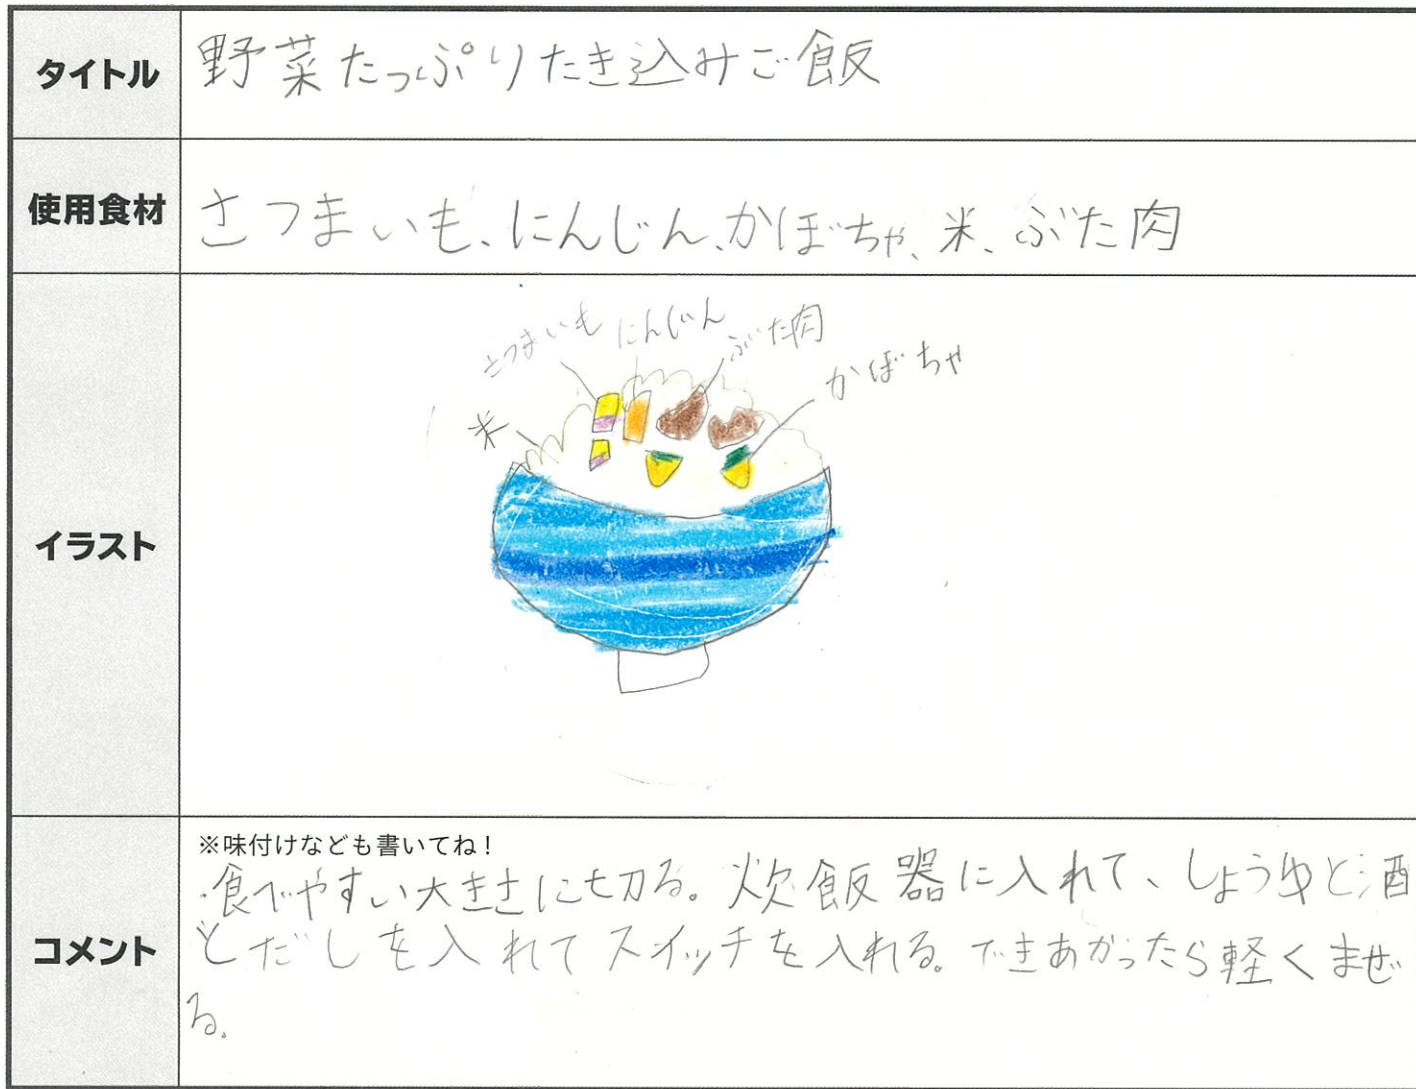 タイトル
野菜たっぷりたき込みご飯
使用食材
さつまいも、にんじん、かぼちゃ、米、ぶた肉
イラスト
さつまいも
にんじん
ぶた肉
かぼちゃ
米
コメント
※味付けなども書いてね！
・食べやすい大きさに切る。炊飯器に入れて、しょうゆと酒
とだしを入れてスイッチを入れる。できあがったら軽くまぜ
る。